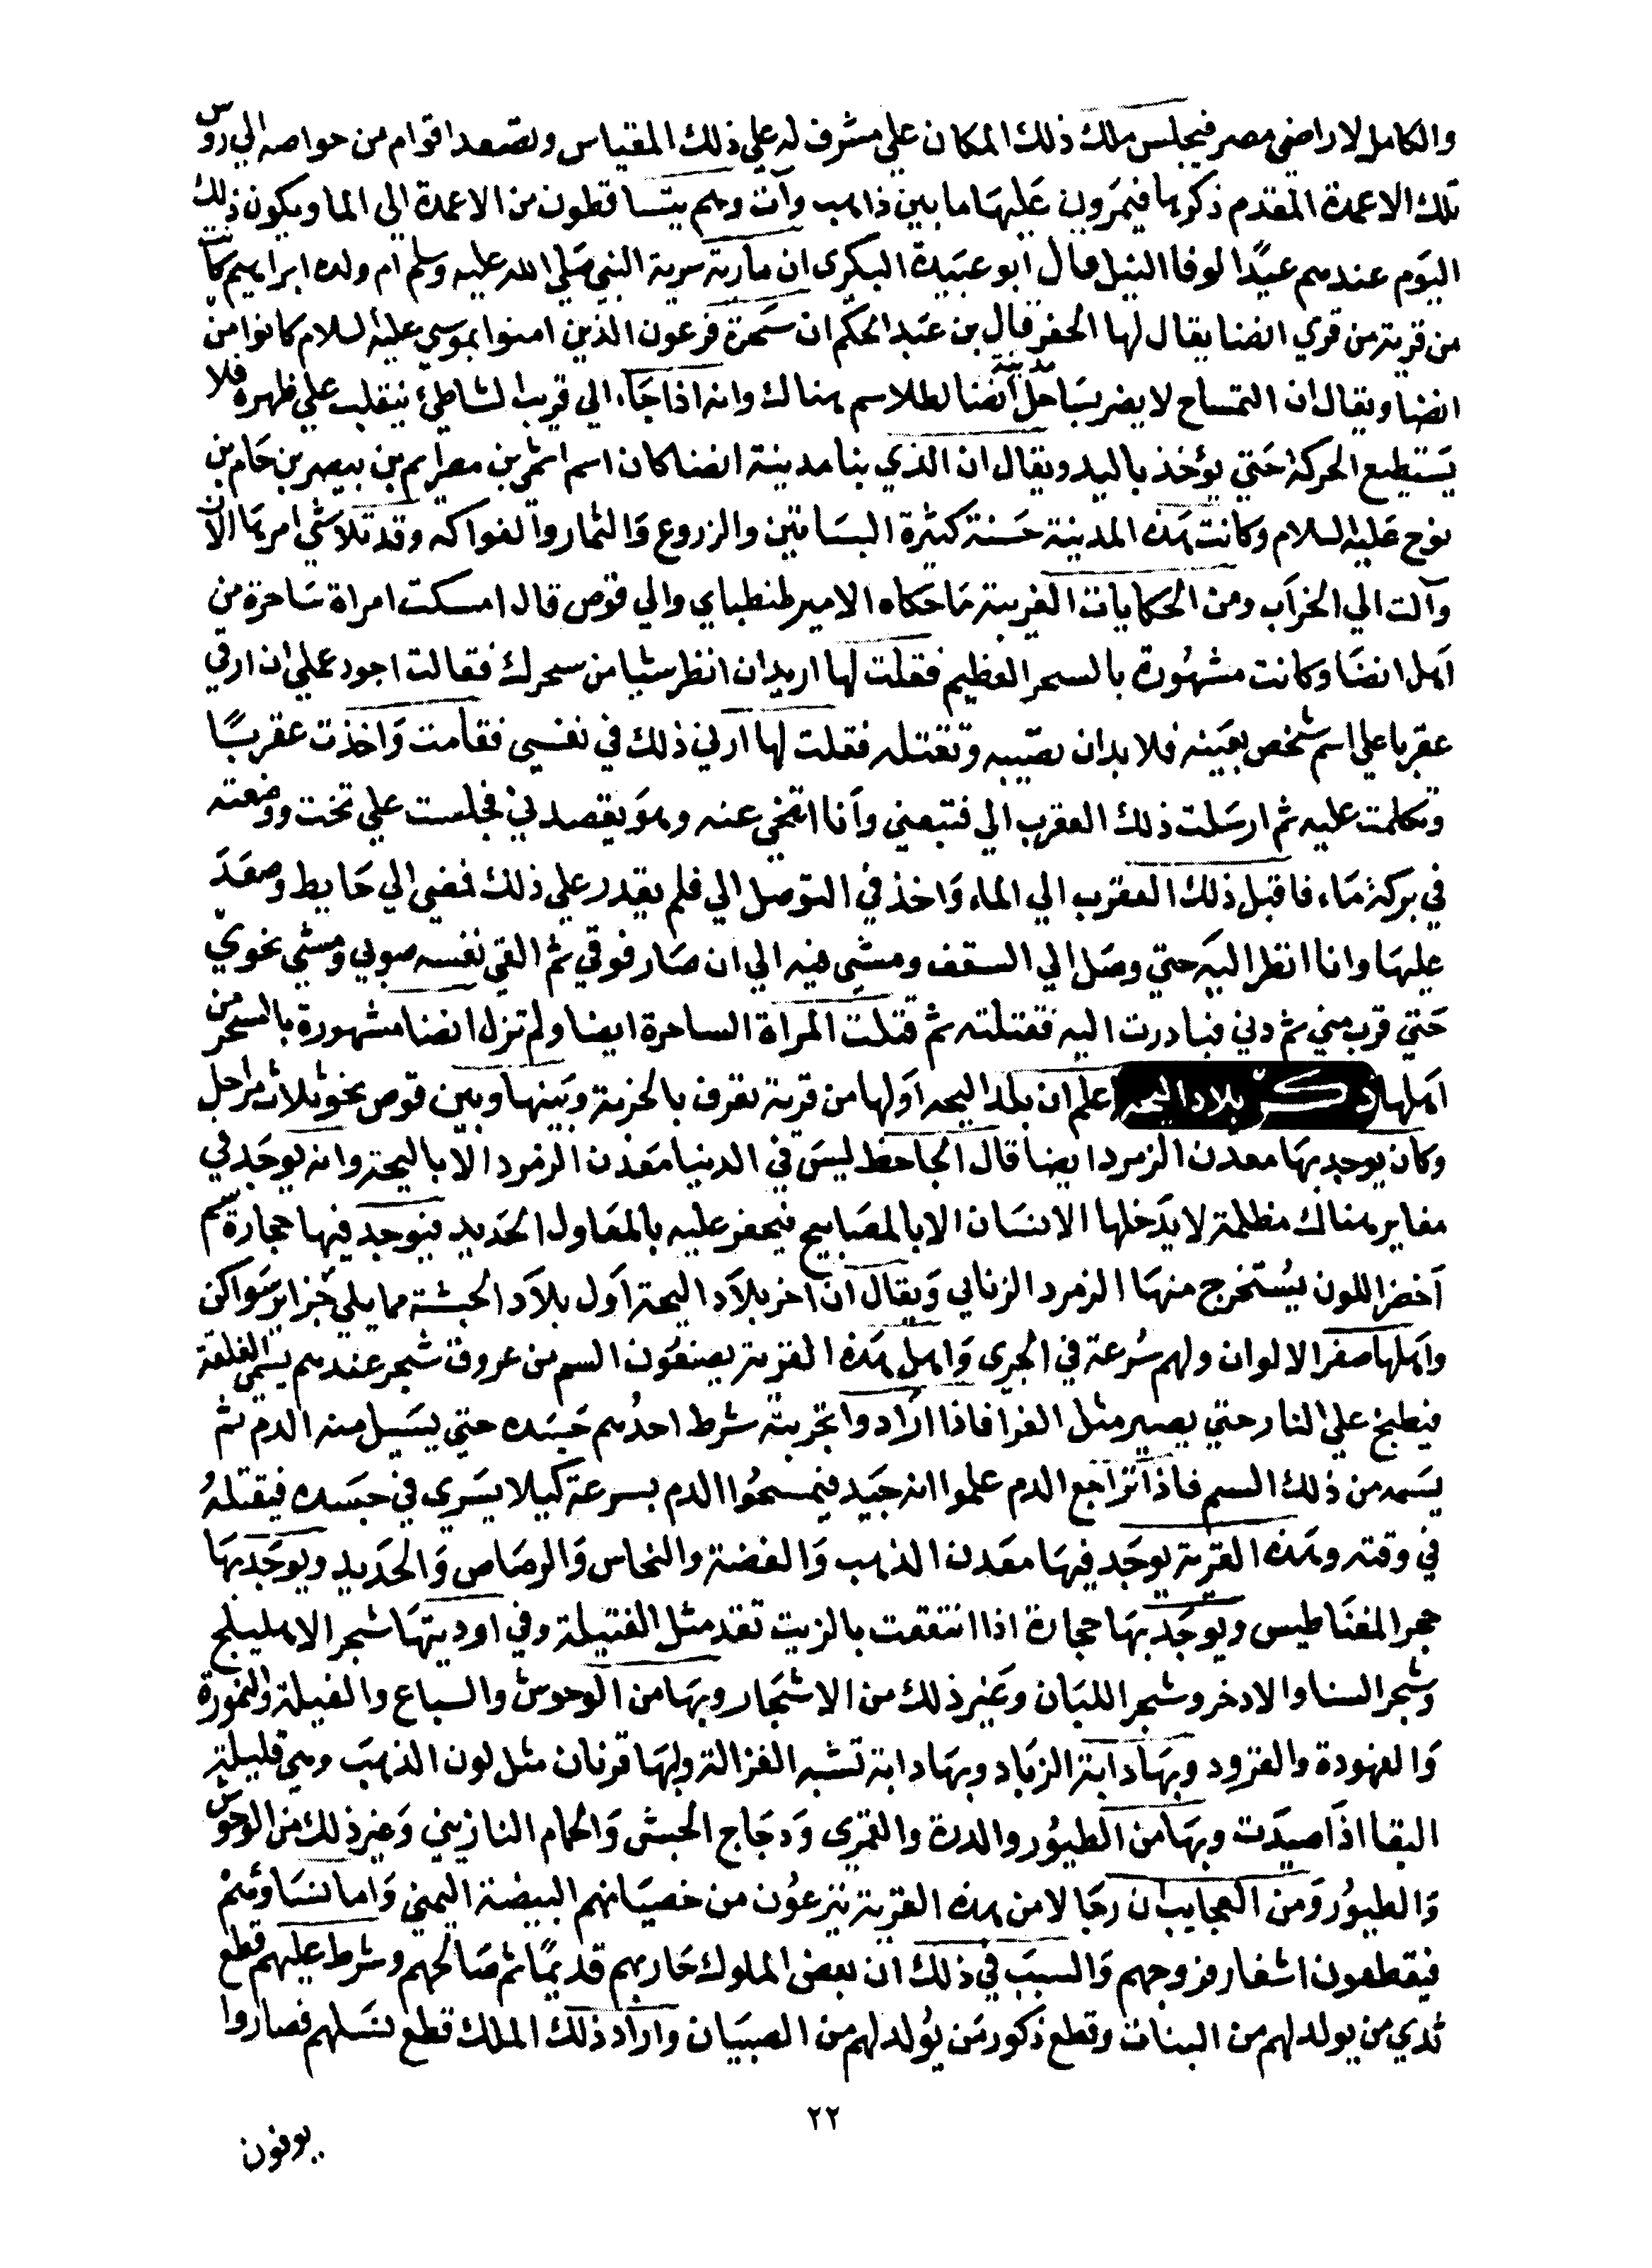 والكامل لاراضي مصر فيجلس ملك ذلك المكان علي مشرف له علي ذلك المقياس وتصعد اقوام من حواصه الي روس
تلك الاعمدة المقدم ذكرها فيمرون عليها ما بين ذاهب وآت وهم يتساقطون من الاعمدة الي الما ويكون ذلك
اليوم عندهم عيدًا لوفا النيل قال ابو عبيدة البكري ان مارية سرية النبي صلي الله عليه وسلم ام ولده ابراهيم كانت
من قرية من قري انضنا يقال لها الحفر قال بن عبد الحكم ان سحرة فرعون الذين امنوا بموسي عليه السلام كانوا من
انضنا ويقال ان التمساح لا يضر بساحل مدينة انضنا لطلاسم هناك وانه اذا جاء الي قريب الشاطئ ينقلب علي ظهره فلا
يستطيع الحركة حتي يؤخذ باليد ويقال ان الذي بنا مدينة انضنا كان اسم اشمن بن مصرايم بن بيصر بن حام بن
نوح عليه السلام وكانت هذه المدينة حسنة كثيرة البساتين والزروع والثمار والفواكه وقد تلاشي امرها الان
وآلت الي الخراب ومن الحكايات الغريبة ما حكاه الامير طنطباي والي قوص قال امسكت امراة ساحرة من
اهل انضنا وكانت مشهورة بالسحر العظيم فقلت لها اريد ان انظر شيا من سحرك فقالت اجود عملي ان ارقي
عقربا علي اسم شخص بعينه فلا بد ان تصيبه وتقتله فقلت لها ارني ذلك في نفسي فقامت واخذت عقربًا
وتكلمت عليه ثم ارسلت ذلك العقرب الي فتبعني وانا اتنحي عنه وهو يقصدني فجلست علي تخت ووضعته
في بركة ماء فاقبل ذلك العقرب الي الماء واخذ في التوصل الي فلم يقدر علي ذلك فمضي الي حايط وصعد
عليها وانا انظر اليه حتي وصل الي السقف ومشي فيه الي ان صار فوقي ثم القي نفسه صوبي ومشي نحوي
حتي قرب مني ثم دني فبادرت اليه فقتلته ثم قتلت المراة الساحرة ايضا ولم تزل انضنا مشهورة بالسحر من
اهلها ذكر بلاد البجه اعلم ان بلد البجه اولها من قرية تعرف بالخربة وبينها وبين قوص نحو ثلاث مراحل
وكان يوجد بها معدن الزمرد ايضا قال الجاحظ ليس في الدنيا معدن الزمرد الا بالبجة وانه يوجد في
مغاير هناك مظلمة لا يدخلها الانسان الا بالمصابيح فيحفر عليه بالمعاول الحديد فيوجد فيها حجارة سم
اخضر اللون يستخرج منها الزمرد الزبابي ويقال ان اخر بلاد البجة اول بلاد الحبشة مما يلي جزاير سواكن
واهلها صفر الالوان ولهم سرعة في الجري واهل هذه القرية يصنعون السم من عروق شجر عندهم يسمي الغلغة
فيطبخ علي النار حتي يصير مثل الغرا فاذا ارادوا تجربته شرط احدهم جسده حتي يسيل منه الدم ثم
يسمه من ذلك السم فاذا تراجع الدم علموا انه جيد فيمسحوا الدم بسرعة كيلا يسري في جسده فيقتله
في وقته وهذه القرية يوجد فيها معدن الذهب والفضة والنحاس والرصاص والحديد ويوجد بها
حجر المغناطيس ويوجد بها حجارة اذا انتقعت بالزيت تقد مثل الفتيلة وفي اوديتها شجر الاهليلج
وشجر السنا والادخر وشجر اللبان وغير ذلك من الاشجار وبها من الوحوش والسباع والفيلة والنمورة
والفهودة والقرود وبها دابة الزباد وبها دابة تشبه الغزالة ولها قرنان مثل لون الذهب وهي قليلة
البقا اذا صيدت وبها من الطيور والدرة والقمري ودجاج الحبش والحمام النازيني وغير ذلك من الوحوش
والطيور ومن العجايب ان رجالا من هذه القرية ينزعون من خصيانهم البيضة اليمني واما نساوئهم
فيقطعون اشفار فروجهم والسبب في ذلك ان بعض الملوك حاربهم قديمًا ثم صالحهم وشرط عليهم قطع
ثدي من يولد لهم من البنات وقطع ذكور من يولد لهم من الصبيان واراد ذلك الملك قطع نسلهم فصاروا
٢٢
يوفون